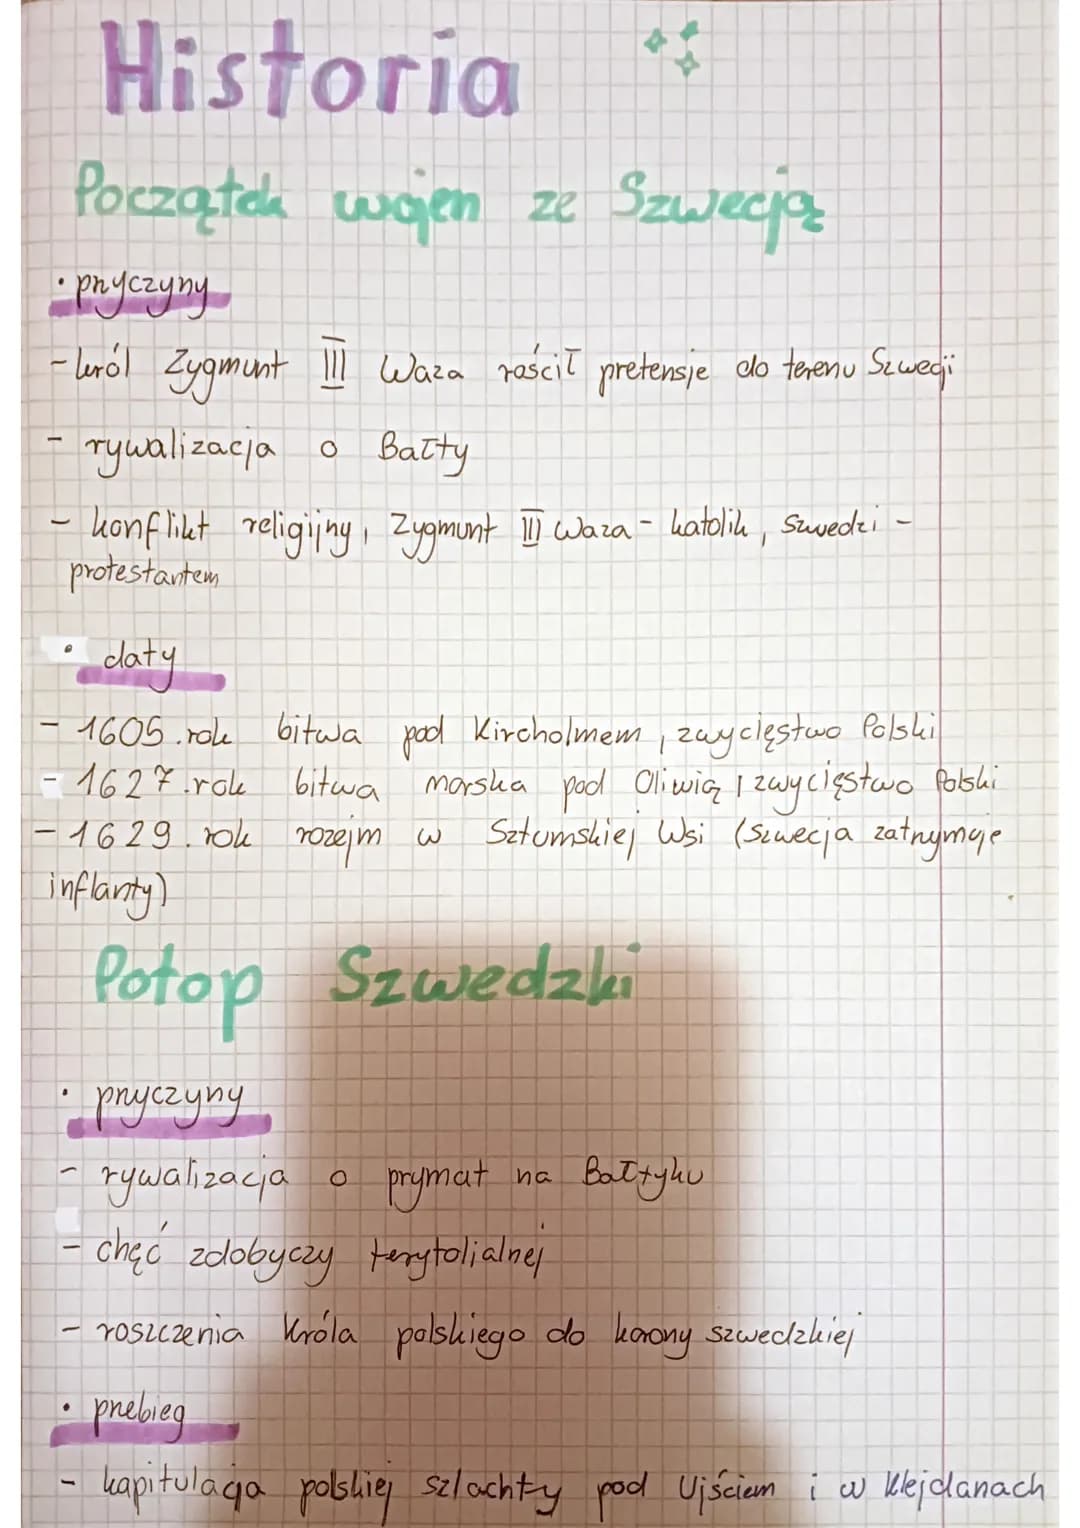 Historia
Początek wojen ze Szwecją
• przyczyny
- król Zygmunt III Waza rościł pretensje do terenu Szwecji
- rywalizacja o Bałty
- konflikt religijny, Zygmunt III Waza - katolik, Szwedzi -
protestantem
• daty
- 1605.rok bitwa pod Kircholmem, zwycięstwo Polski
- 1627.rok bitwa morska pod Oliwią, zwycięstwo Polski
- 1629.rok rozejm w Sztumskiej Wsi (Szwecja zatrzymuje
inflanty)
Potop Szwedzki
• przyczyny
- rywalizacja o prymat na Bałtyku
- chęć zdobyczy terytolialnej
- roszczenia króla polskiego do korony szwedzkiej
• przebieg
- kapitulacja polskiej szlachty pod Ujściem i w Klejdanach